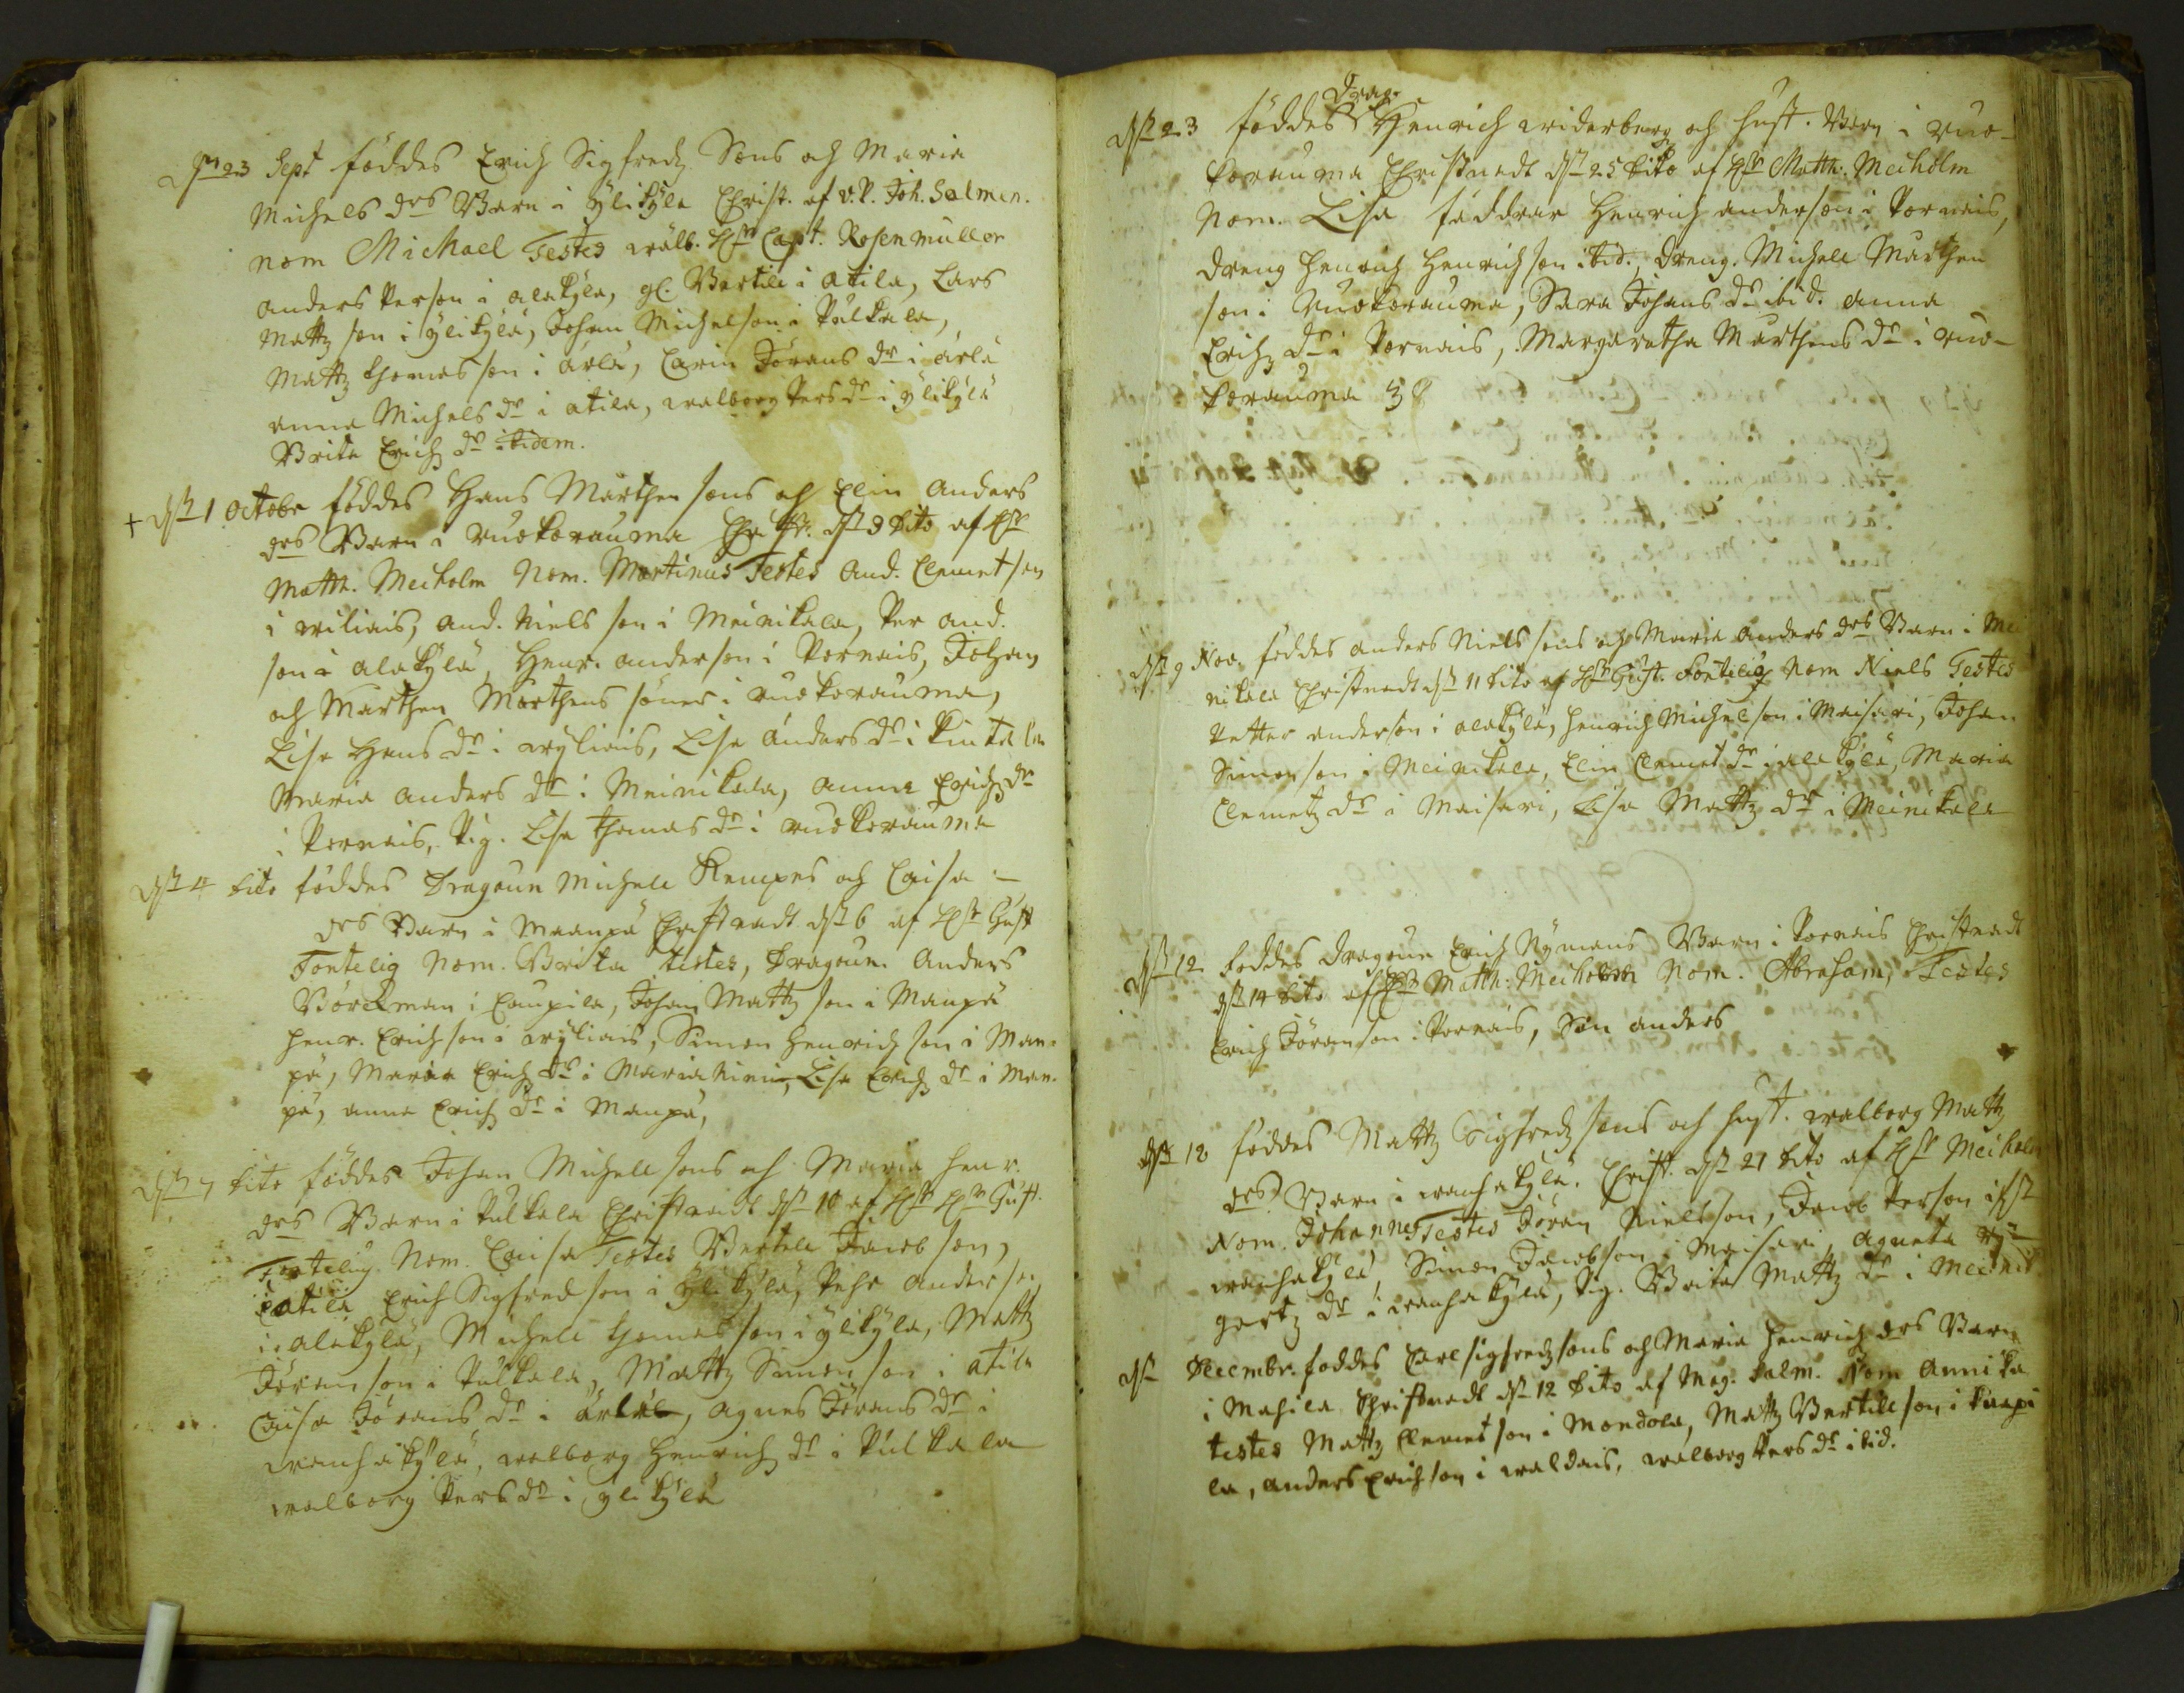 dn 23 Sept föddes Erich Sigfredz Sons och Maria
Michels drs Barn i ÿlikÿla Christ. af v.P. Joh. Salmen.
nom Michael Testes wälb. Hr Capt. Rosenmuller
anders Person i alakÿla, gl. Bertill i atila, Lars
Mattz son i ÿlikÿla, Johan Michelson i Pulkala,
Mattz Thomas son i ärlä, Carin Jörans dr i ärlä
anna Michels dr i atila, walborg Pers dr i ÿlikÿla
Brita Erichz dr ibidem.
+ dn 1 Octobr föddes Hans Mårthen sons och Elin Anders
drs Barn i ruokorauma Christ. dn 3 dito af Hr
Matth. Meiholm Nom. Martinus Testes And. Clemet son
i wiliais, and. Niels son i Meinikala, Per And.
son i alakÿla, Henr. anderson i Pornais, Johan
och Mårthen Mårthens söner i ruokorauma,
Lisa Hans dr i wÿliais, Lisa Anders dr i Kintala
Maria anders dr i Meinikala, anna Erichz dr
i Pornais, Pig. Lisa Thomas dr i ruokorauma
dn 4 dito föddes Dragoun Michell Kempes och Caisa
drs Barn i Maanpä Christnadt dn 6 af Hr Gust
Fontelig Nom. Brita testes, Dragoun Anders
Börckman i Caupila, Johan Mattz son i Manpä
Henr. Erichson i wÿliais, Simon Henrich son i Man-
pä, Maria Erichz dr i Marianiemi, Lisa Erichz dr i Man-
pä, anna Erichz dr i Manpä,
dn 7 dito föddes Johan Michell sons och Maria Henr.
drs Barn i Pulkala Christnadt dn 10 af Hr Gust.
Fontelig Nom. Caisa Testes Bertell Jacob son,
i atila Erich Sigfred son i ÿlikÿla, Pehr Anderson
i alakÿla, Michell Thomas son i ÿlikÿla, Mattz
Jöran son i Pulkala, Mattz Simon son i atila
Caisa Jörans dr i ärlä, Agnes Jörans dr i
wanhakÿla, walborg Henrich dr i Pulkala
walborg Pers dr i ÿlikÿla
Drag.
dn 23 föddes Henrich widerberg och hust. Barn i ruo-
korauma Christnadt dn 25 dito af Hr Matth. Meiholm
Nom. Lisa faddrar Henrich anderson i Pornais,
Dreng Henrich Henrichson ibid., Dreng. Michell Mårthen
son i Ruokorauma, Sara Johans dr ibid. anna
Erichz dr i Pornais, Margaretha Mårthens dr i ruo-
korauma
dn 9 Nov. föddes anders Niels sons och Maria Anders drs Barn i Mei
nikala Christnadt dn 11 dito af Hr Gust. Fontelig Nom Niels Testes
Petter anderson i alakÿla, Henrich Michelson i Maisari, Johan
Simon son i Meinikala, Elin Clemet dr i alakÿla, Maria
Clemetz dr i Maisari, Lisa Mattz dr i Meinikala
dn 12 föddes Dragoun Erich Nÿmans Barn i Pornais Christnadt
dn 14 dito af Hr Matth. Meiholm Nom. Abraham, Testes
Erich Jöranson i Pornais, Son anders
dn 18 föddes Mattz Sigfredz sons och hust. walborg Mattz
drs Barn i wanhakÿla. Christ. dn 21 dito af Hr Meiholm
Nom. Johannes Testes Jöran Nielsson, Jacob Person
wanhakÿla, Simon Jacobson i Maisari, Agneta
dr i wanhakÿla, Pig. Brita Mattz dr i Meinik
dn Decembr. föddes Carl Sigfredz sons och Maria Henrich drs Barn
i Mahila Christnadt dn 12 dito af Mag. Salm. Nom Annika
testes Mattz Clemet son i Mondola, Mattz Bertill son i Kaupi
la, anders Erichson i waldais, walborg Pers dr ibid.